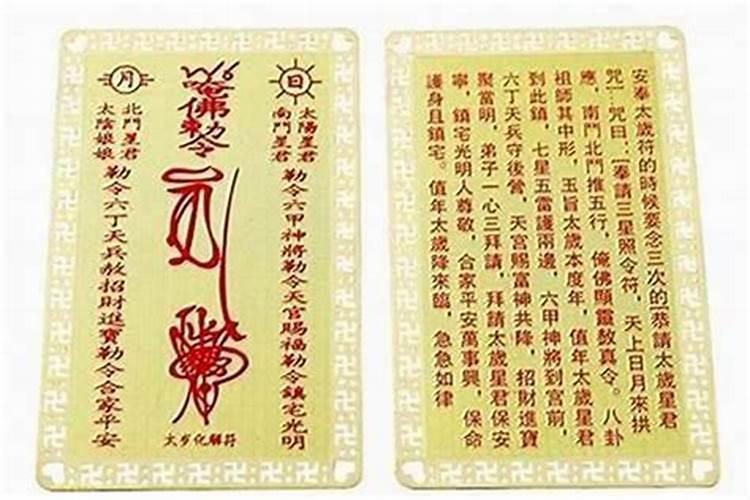 日
太陽星君
南鬥星君
勒令六甲神將勒令天官賜福勒令鎮宅光明
唵佛勅令
太岁化解符
月
北鬥星君
太陰娘娘
勒令六丁天兵敖招財進寶勒令合家平安
安奉太歲符的時候要念三次的[恭請太歲星君
咒]...咒曰：[奉請三星照令符，天上日月來拱
應，南鬥北鬥推五行，俺佛顯靈敖真令。八卦
祖師其中形，玉旨太歲本度年，值年太歲星君
到此鎮，七星五雷護兩邊，六甲神將到宮前，
六丁天兵守後營，天宮賜富神共降，招財進寶
聚當明，弟子一心三拜請，拜請太歲星君保安
寧，鎮宅光明人尊敬，合家平安萬事興，保命
護身且鎮宅。值年太歲降來臨，急急如律